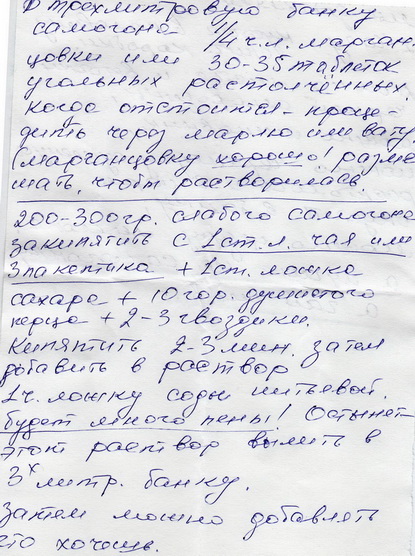 В трёхлитровую банку
самогона 1/4 ч.л. марган
цовки или 30-35 таблеток
угольных растолчённых.
когда отстоится - проце-
дить через марлю или вату.
(марганцовку хорошо! разме
шать, чтоб растворилась.
200-300 гр. слабого самогона
закипятить с 1 ст. л. чая или
3 пакетика + 1 ст. ложка
сахара + 10 гор. душистого
перца + 2-3 гвоздики.
Кипятить 2-3 мин. затем
добавить в раствор
1 ч. ложку соды питьевой.
будет много пены! Остынет-
этот раствор вылить в
3х литр. банку.
Затем можно добавлять
что хочешь.